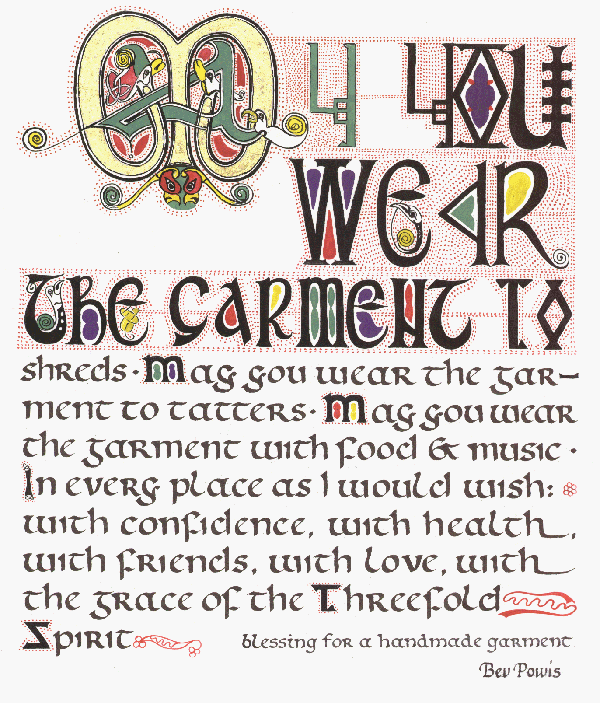 MY YOU
WEAR
THE GARMENT TO
shreds · May you wear the gar-
ment to tatters · May you wear
the garment with food & music ·
In every place as I would wish:
with confidence, with health,
with friends, with love, with
the grace of the Threefold
Spirit
blessing for a handmade garment
Bev Powis